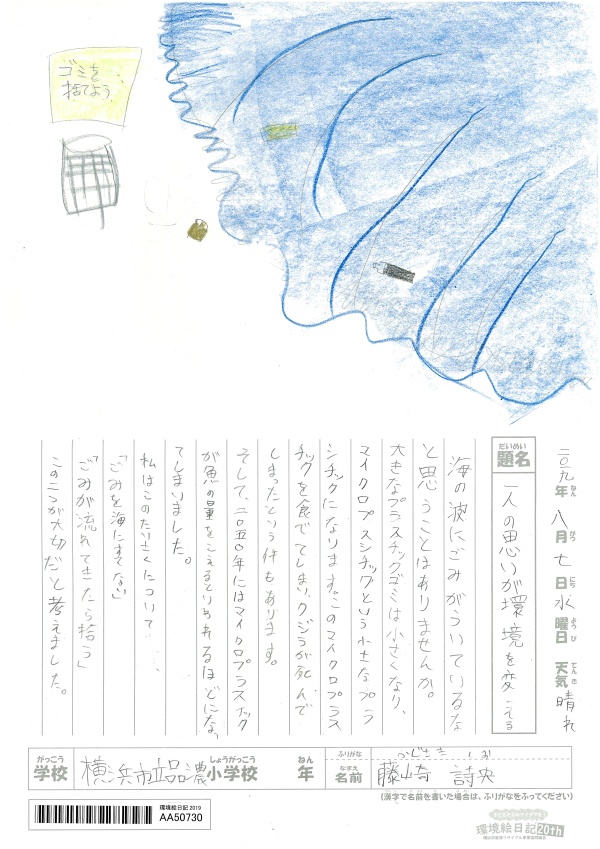 ゴミを
捨てよう
二〇一九年八月七日水曜日 天気 晴れ
ねん がつ にち ようび てんき
だいめい
題名 一人の思いが環境を変える
海の波にごみがういているな
と思うことはありませんか。
大きなプラスチックゴミは小さくなり、
マイクロプスシチックという小さなプラ
シチックになります。このマイクロプラス
チックを食べてしまい、クジラが死んで
しまったという件もあります。
そして、二〇五〇年にはマイクロプラスチック
が魚の量をこえるといわれるほどにな
てしまいました。
私はこのたいさくについて……
「ごみを海にすてない」
「ごみが流れてきたら拾う」
この二つが大切だと考えました。
がっこう しょうがっこう ねん ふりがな ふじさき しお
学校 横浜市立品濃小学校 年 なまえ 名前 藤崎 詩央
(漢字で名前を書いた場合は、ふりがなをふってください)
環境絵日記 2019
AA50730
環境絵日記20th